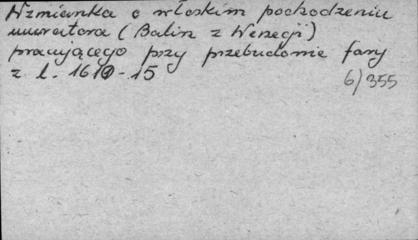 Wzmianka o włoskim pochodzeniu
muratora (Balin z Wenecji)
pracującego przy przebudowie fary
z l. 1610-15
6/355